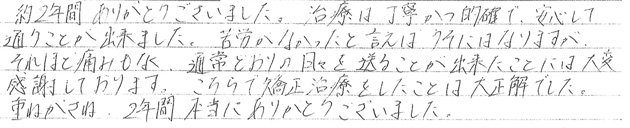 約2年間ありがとうございました。治療は丁寧かつ的確で、安心して
通うことが出来ました。苦労がなかったと言えばうそにはなりますが、
それほど痛みもなく、通常どおりの日々を送ることが出来たことには大変
感謝しております。こちらで矯正治療をしたことは大正解でした。
重ねがさね、2年間本当にありがとうございました。